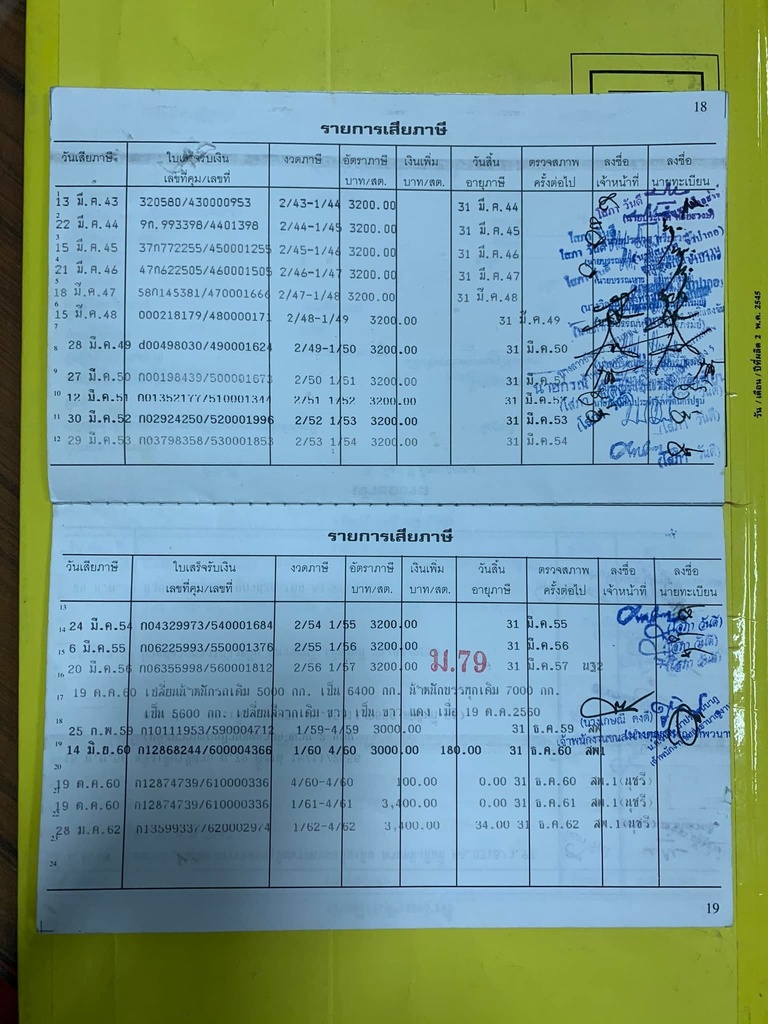 18
รายการเสียภาษี
วันเสียภาษี ใบเสร็จรับเงิน งวดภาษี อัตราภาษี เงินเพิ่ม วันสิ้น ตรวจสภาพ ลงชื่อ ลงชื่อ
เลขที่คุม/เลขที่ บาท/สต. บาท/สต. อายุภาษี ครั้งต่อไป เจ้าหน้าที่ นายทะเบียน
1 13 มี.ค.43 320580/430000953 2/43-1/44 3200.00 31 มี.ค.44
2 22 มี.ค.44 9ก.993398/4401398 2/44-1/45 3200.00 31 มี.ค.45
3 15 มี.ค.45 37ก772255/450001255 2/45-1/46 3200.00 31 มี.ค.46
4 21 มี.ค.46 47ก622505/460001505 2/46-1/47 3200.00 31 มี.ค.47
5 18 มี.ค.47 58ก145381/470001666 2/47-1/48 3200.00 31 มี.ค.48
6 15 มี.ค.48 000218179/480000171 2/48-1/49 3200.00 31 มี.ค.49
7
8 28 มี.ค.49 d00498030/490001624 2/49-1/50 3200.00 31 มี.ค.50
9 27 มี.ค.50 ก00198439/500001673 2/50 1/51 3200.00 31 มี.ค.51
10 12 มี.ค.51 ก01352177/510001344 2/51 1/52 3200.00 31 มี.ค.52
11 30 มี.ค.52 ก02924250/520001996 2/52 1/53 3200.00 31 มี.ค.53
12 29 มี.ค.53 ก03798358/530001853 2/53 1/54 3200.00 31 มี.ค.54
(โสภา วันดี)
รายการเสียภาษี
วันเสียภาษี ใบเสร็จรับเงิน งวดภาษี อัตราภาษี เงินเพิ่ม วันสิ้น ตรวจสภาพ ลงชื่อ ลงชื่อ
เลขที่คุม/เลขที่ บาท/สต. บาท/สต. อายุภาษี ครั้งต่อไป เจ้าหน้าที่ นายทะเบียน
13
14 24 มี.ค.54 ก04329973/540001684 2/54 1/55 3200.00 31 มี.ค.55 (โสภา วันดี)
15 6 มี.ค.55 ก06225993/550001376 2/55 1/56 3200.00 31 มี.ค.56
16 20 มี.ค.56 ก06355998/560001812 2/56 1/57 3200.00 ม.79 31 มี.ค.57 นฐ2
17 19 ต.ค.60 เปลี่ยนน้ำหนักรถเดิม 5000 กก. เป็น 6400 กก. น้ำหนักบรรทุกเดิม 7000 กก.
เป็น 5600 กก. เปลี่ยนสีจากเดิม ขาว เป็น ขาว แดง เมื่อ 19 ต.ค.2560
18 25 ก.พ.59 ก10111953/590004712 1/59-4/59 3000.00 31 ธ.ค.59 สพ
19 14 มิ.ย.60 ก12868244/600004366 1/60 4/60 3000.00 180.00 31 ธ.ค.60 สพ1
20
19 ต.ค.60 ก12874739/610000336 4/60-4/60 100.00 0.00 31 ธ.ค.60 สพ.1(นุชรี)
19 ต.ค.60 ก12874739/610000336 1/61-4/61 3,400.00 0.00 31 ธ.ค.61 สพ.1(นุชรี)
28 ม.ค.62 ก13599337/620002974 1/62-4/62 3,400.00 34.00 31 ธ.ค.62 สพ.1(นุชรี)
23
24
19
วัน / เดือน / ปีที่ผลิต 2 พ.ค. 2545